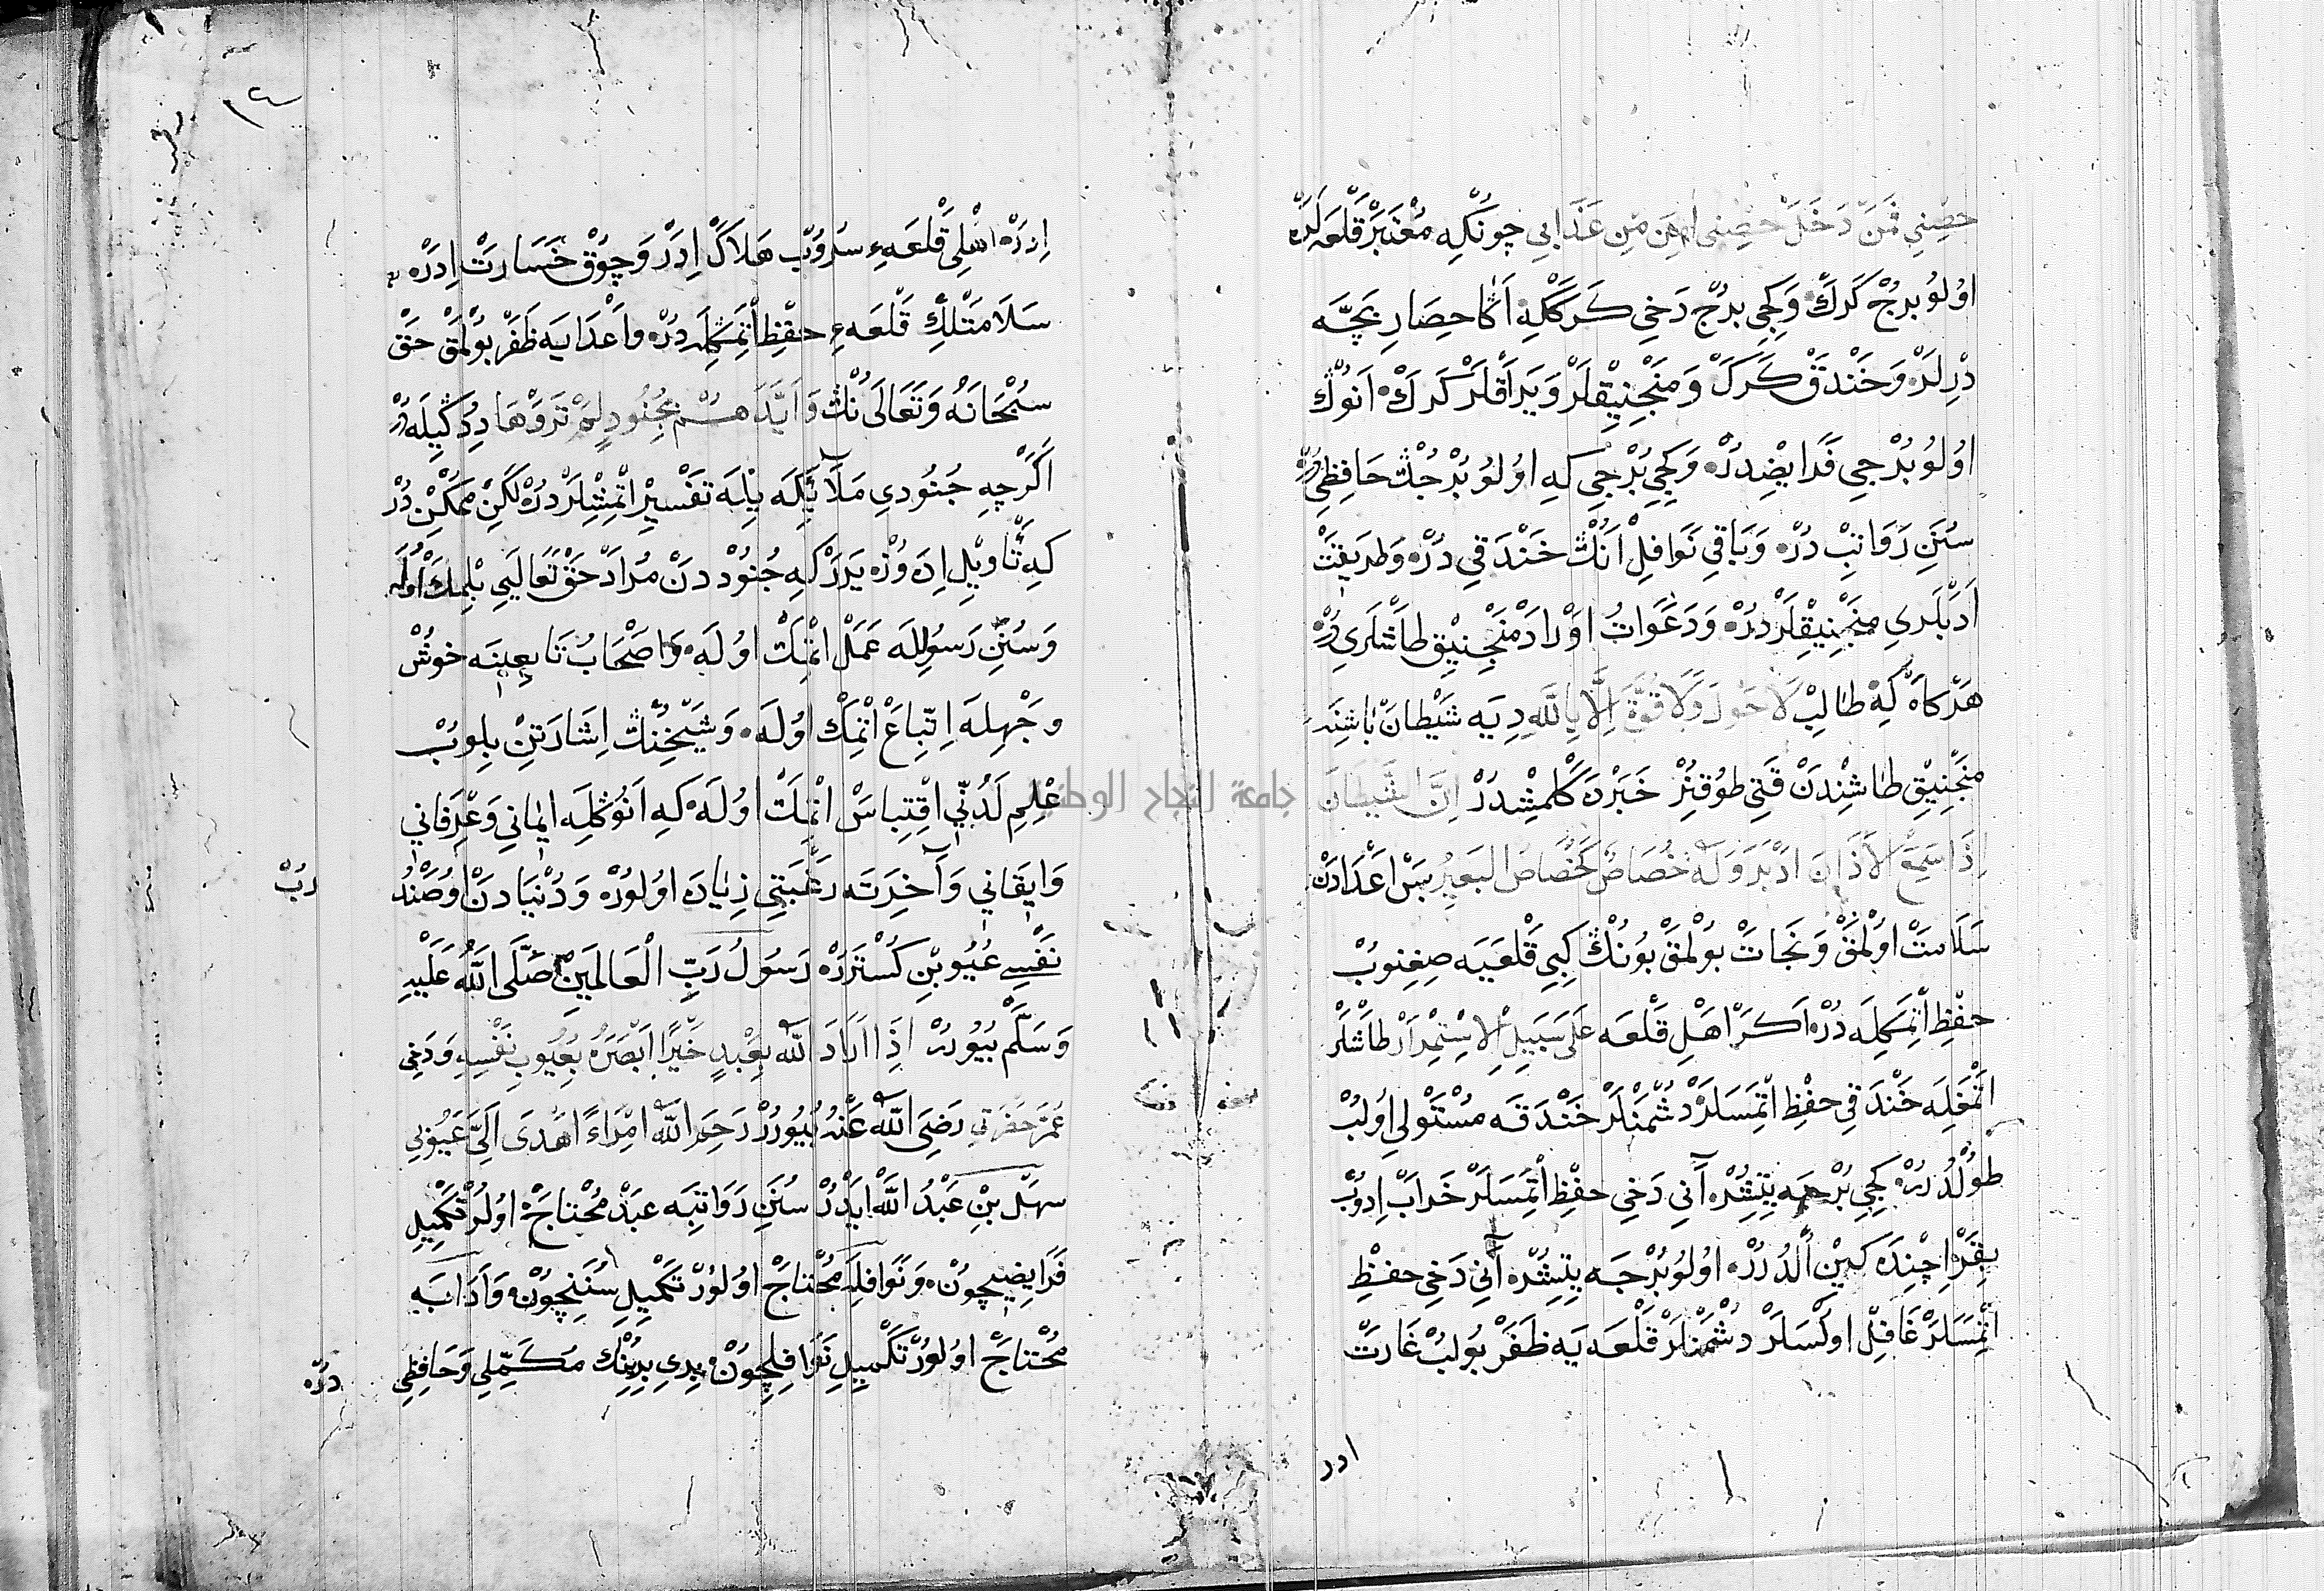 حِصْنِي فَمَنْ دَخَلَ حِصْنِي اَمِنَ مِنْ عَذَابِي چُونْكِه مُعْتَبَرْ قَلْعَه لَرْدَه
اوُلوُ بُرجْ كَرَكْ وَكِچِي بُرْج دَخِي كَرَكْلِه اَكَا حِصَارِ بَچَّه
دْرلَرْ وَخَنْدَقْ كَرَكْ وَمَنْجَنِيْقْلَرْ وَيَرَاقْلَرْ كَرَكْ اَنُوڭْ
اوُلوُ بُرْجِي فَرَايِضْدُرْ وَكِچِي بُرْجِي كِه اوُلوُ بُرْجُڭْ حَافِظِي دُرْ
سُنَنِ رَوَاتِبْ دُرْ وَبَاقِي نَوَافِلْ اَنُڭْ خَنْدَقِي دُرْ وَطَرِيقَتْ
اَدَبْلَرِي مَنْجَنِيقْلَرْدُرْ وَدَعَوَاتُ اَوْرَادْ مَنْجَنِيْق طَاشْلَرِي دُرْ
هَرْكَاهْ كِه طَالِبْ لَاحَوْلَ وَلَا قُوَّةَ اِلَّا بِاللّٰهِ دِيَه شَيْطَانْ بَاشِنَه
مَنْجَنِيْق طَاشِنْدَنْ قَتِي طُوقُنُرْ خَبَرْدَه كَلْمِشْدُرْ اِنَّ الشَّيْطَانَ
جامعة النجاح الوطنية
اِذَا سَمِعَ الْاَذَانَ اَدْبَرَ وَلَهُ خُصَاصٌ كَخُصَاصِ الْبَعِيْرِ بَسْ اَعْدَادَنْ
سَلَامَتْ اوُلْمَقْ وَنَجَاتْ بُولْمَقْ بُونُڭْ كِبِي قَلْعَيَه صِغِنُوبْ
حِفْظ اِتْمَكِلَه دُرْ اَكَرْ اَهْلِ قَلْعَه عَلَى سَبِيلِ الْاِسْتِمْرَارْ طَاشْلَرْ
اَتْمَغِلَه خَنْدَقِي حِفْظ اِتْمَسَلَرْ دُشْمَنْلَرْ خَنْدَقَه مُسْتَوْلِي اوُلُبْ
طُولْدُرُرْ كِچِي بُرْجَه يِتِشُرْ آنِي دَخِي حِفْظ اِتْمَسَلَرْ خَرَابْ اِدُوبْ
اِچِنْدَه اوُلوُ بُرْجَه يِتِشُرْ آنِي دَخِي حِفْظِ
اِتْمَسَلَرْ غَافِلْ اوُلْسَلَرْ دُشْمَنْلَرْ قَلْعَه يَه ظَفَرْ بُولُبْ غَارَتْ
ادر
١٣
اِدَرْ اَهْلِي قَلْعَهءِ سُرُوبْ هَلَاكْ اِدَرْ وَچُوقْ خَسَارَتْ اِدَرْ
سَلَامَتْلِكْ قَلْعَهءِ حِفْظ اِتْمَكِلَه دُرْ وَاَعْدَايَه ظَفَرْ بُولْمَقْ حَقْ
سُبْحَانَهُ وَتَعَالَى نُڭْ وَاَيَّدَهُمْ بِجُنُودٍ لَمْ تَرَوْهَا دِدُكِيلَه دُرْ
اَكَرْچِه جُنُودِي مَلَائِكَه يِلَه تَفْسِيرْ اِتْمِشْلَرْدُرْ لَكِنْ مُمْكِنْ دُرْ
كِه تَأْوِيل اِدَوُزْ يَرَرْ كِه جُنُودْ دَنْ مُرَادْ حَقْ تَعَالَيِي بْلِمَكْ اوُلَه
وَسُنَنِ رَسُولِلَه عَمَلْ اِتْمَكْ اوُلَه وَاَصْحَابُ تَابِعِينَه خُوشْ
وَجْهِلَه اِتِّبَاعْ اِتْمَكْ اوُلَه وَشَيْخِنُڭْ اِشَارَتِنْ بِلُوبْ
عْلِمِ لَدُنِّي اقْتِبَاسْ اِتْمَكْ اوُلَه كِه اَنُوڭِلَه اِيمَانِي وَعْرِفَانِي
وَايِقَانِي وَآخِرَتَه رَغْبَتِي زِيَادَه اوُلوُرْ وَدُنْيَادَنْ اوُصَنْدُ
رُبْ
نَفْسِي عُيُوبْنِ كُسْتَرَرْ رَسُولُ رَبِّ الْعَالَمِينَ صَلَّى اللّٰهُ عَلَيْهِ
وَسَلَّمْ بُيُورُرْ اِذَا اَرَادَ اللّٰه بِعَبْدٍ خَيْرًا اَبْصَرَهُ بِعُيُوبِ نَفْسِهِ وَدَخِي
عُمَرْ حَضْرَتِي رَضِيَ اللّٰه عَنْهُ بُيُورُرْ رَحِمَ اللّٰه اِمْرَاءً اَهْدَى اِلَيَّ عُيُوبِي
سَهْلْ بْنِ عَبْدُ اللّٰهْ اَيْدُرْ سُنَنِ رَوَاتِبَه عَبْدْ مُحْتَاجْ اوُلُرْ تَكْمِيلِ
فَرَايِضِيچُونْ وَنَوَافِلَه مُحْتَاجْ اوُلوُرْ تَكْمِيلِ سُنَنِچُونْ وَآدَابَه
مُحْتَاجْ اوُلوُرْ تَكْمِيلِ نَوَافِلِچُونْ بِرِي بِرِيْنِڭْ مُكَمِّلِي وَحَافِظِي
دُرْ